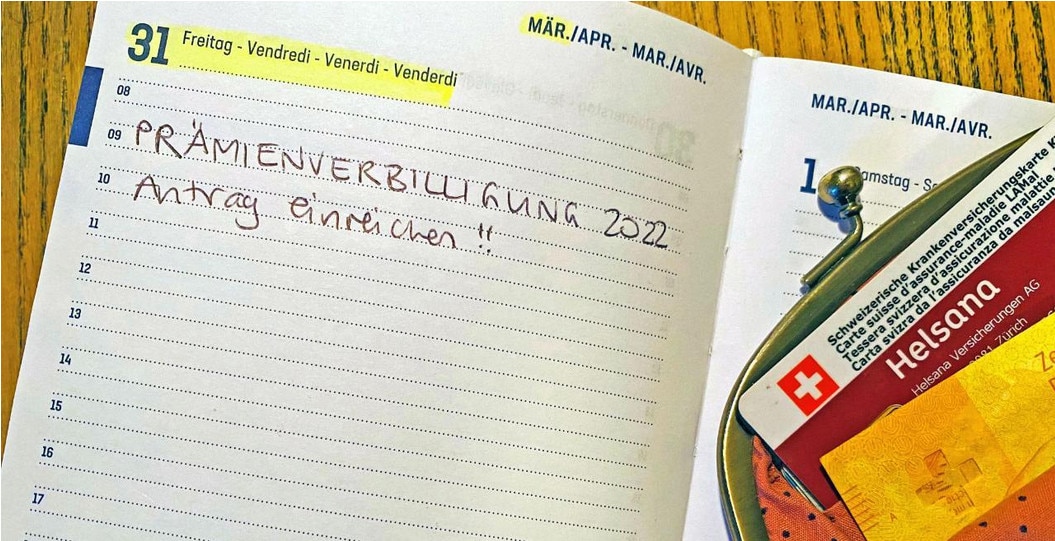 31 Freitag - Vendredi - Venerdi - Venderdi
MÄR./APR. - MAR./AVR.
08
09 PRÄMIENVERBILLIGUNG 2022
10 Antrag einreichen !!
11
12
13
14
15
16
17
MAR./APR. - MAR./AVR.
1 Samstag
Schweizerische Krankenversicherungskarte
Carte suisse d'assurance-maladie LAMal
Tessera svizzera d'assicurazione malattie
Carta svizra da l'assicuranza da malsauns
Helsana
Helsana Versicherungen AG
8081 Zürich